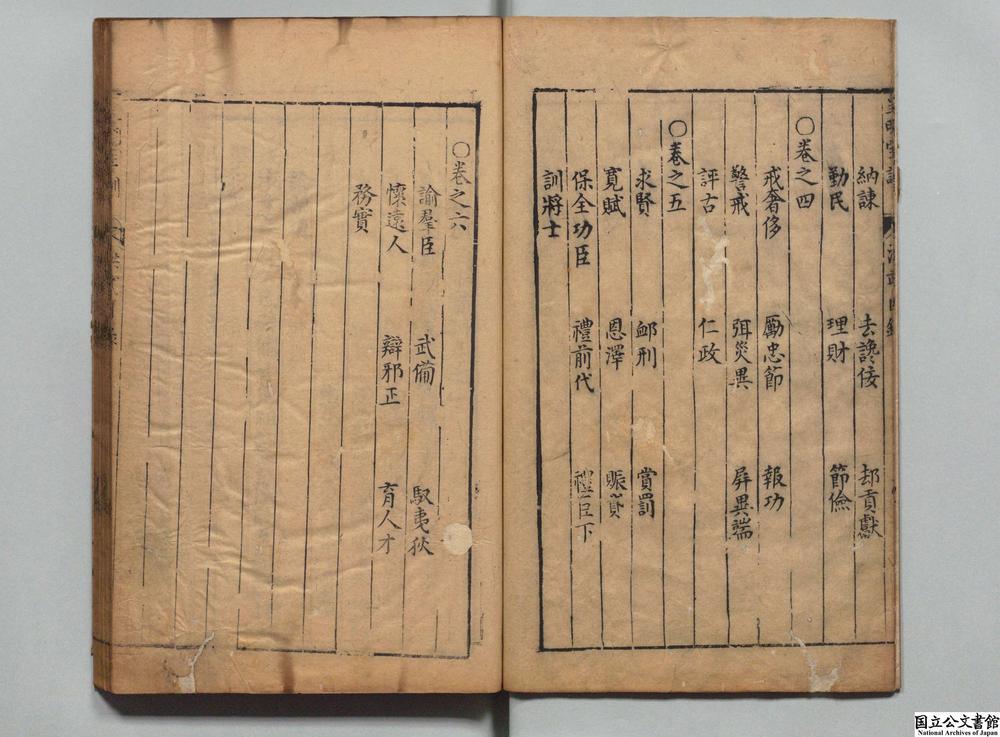 納諫 去讒佞 却貢獻
勤民 理財 節儉
○卷之四
戒奢侈 勵忠節 報功
警戒 弭災異 屏異端
評古 仁政
○卷之五
求賢 䘏刑 賞罰
寬賦 恩澤 賑貸
保全功臣 禮前代 禮臣下
訓將士
○卷之六
諭羣臣 武備 馭夷狄
懷遠人 辯邪正 育人才
務實
国立公文書館
National Archives of Japan